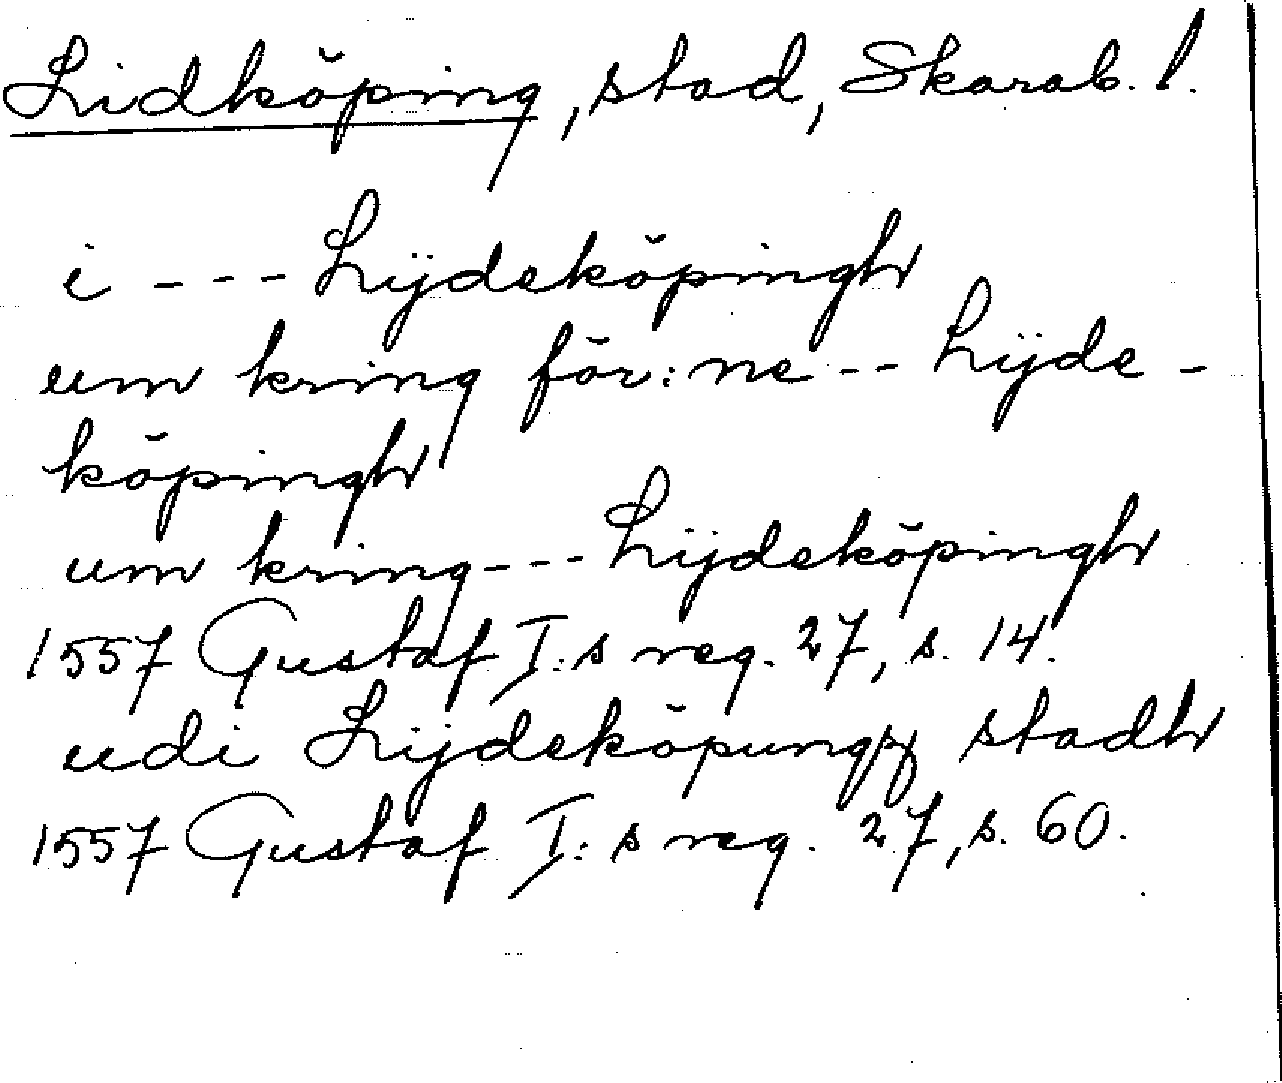 Lidköping, stad, Skarab. l.
i --- Lijdeköpingh
um kring för:ne -- Lijde-
köpingh
um kring --- Lijdeköpingh
1557 Gustaf I:s reg. 27, s. 14.
udi Lijdeköpungx stadh
1557 Gustaf I:s reg. 27, s. 60.